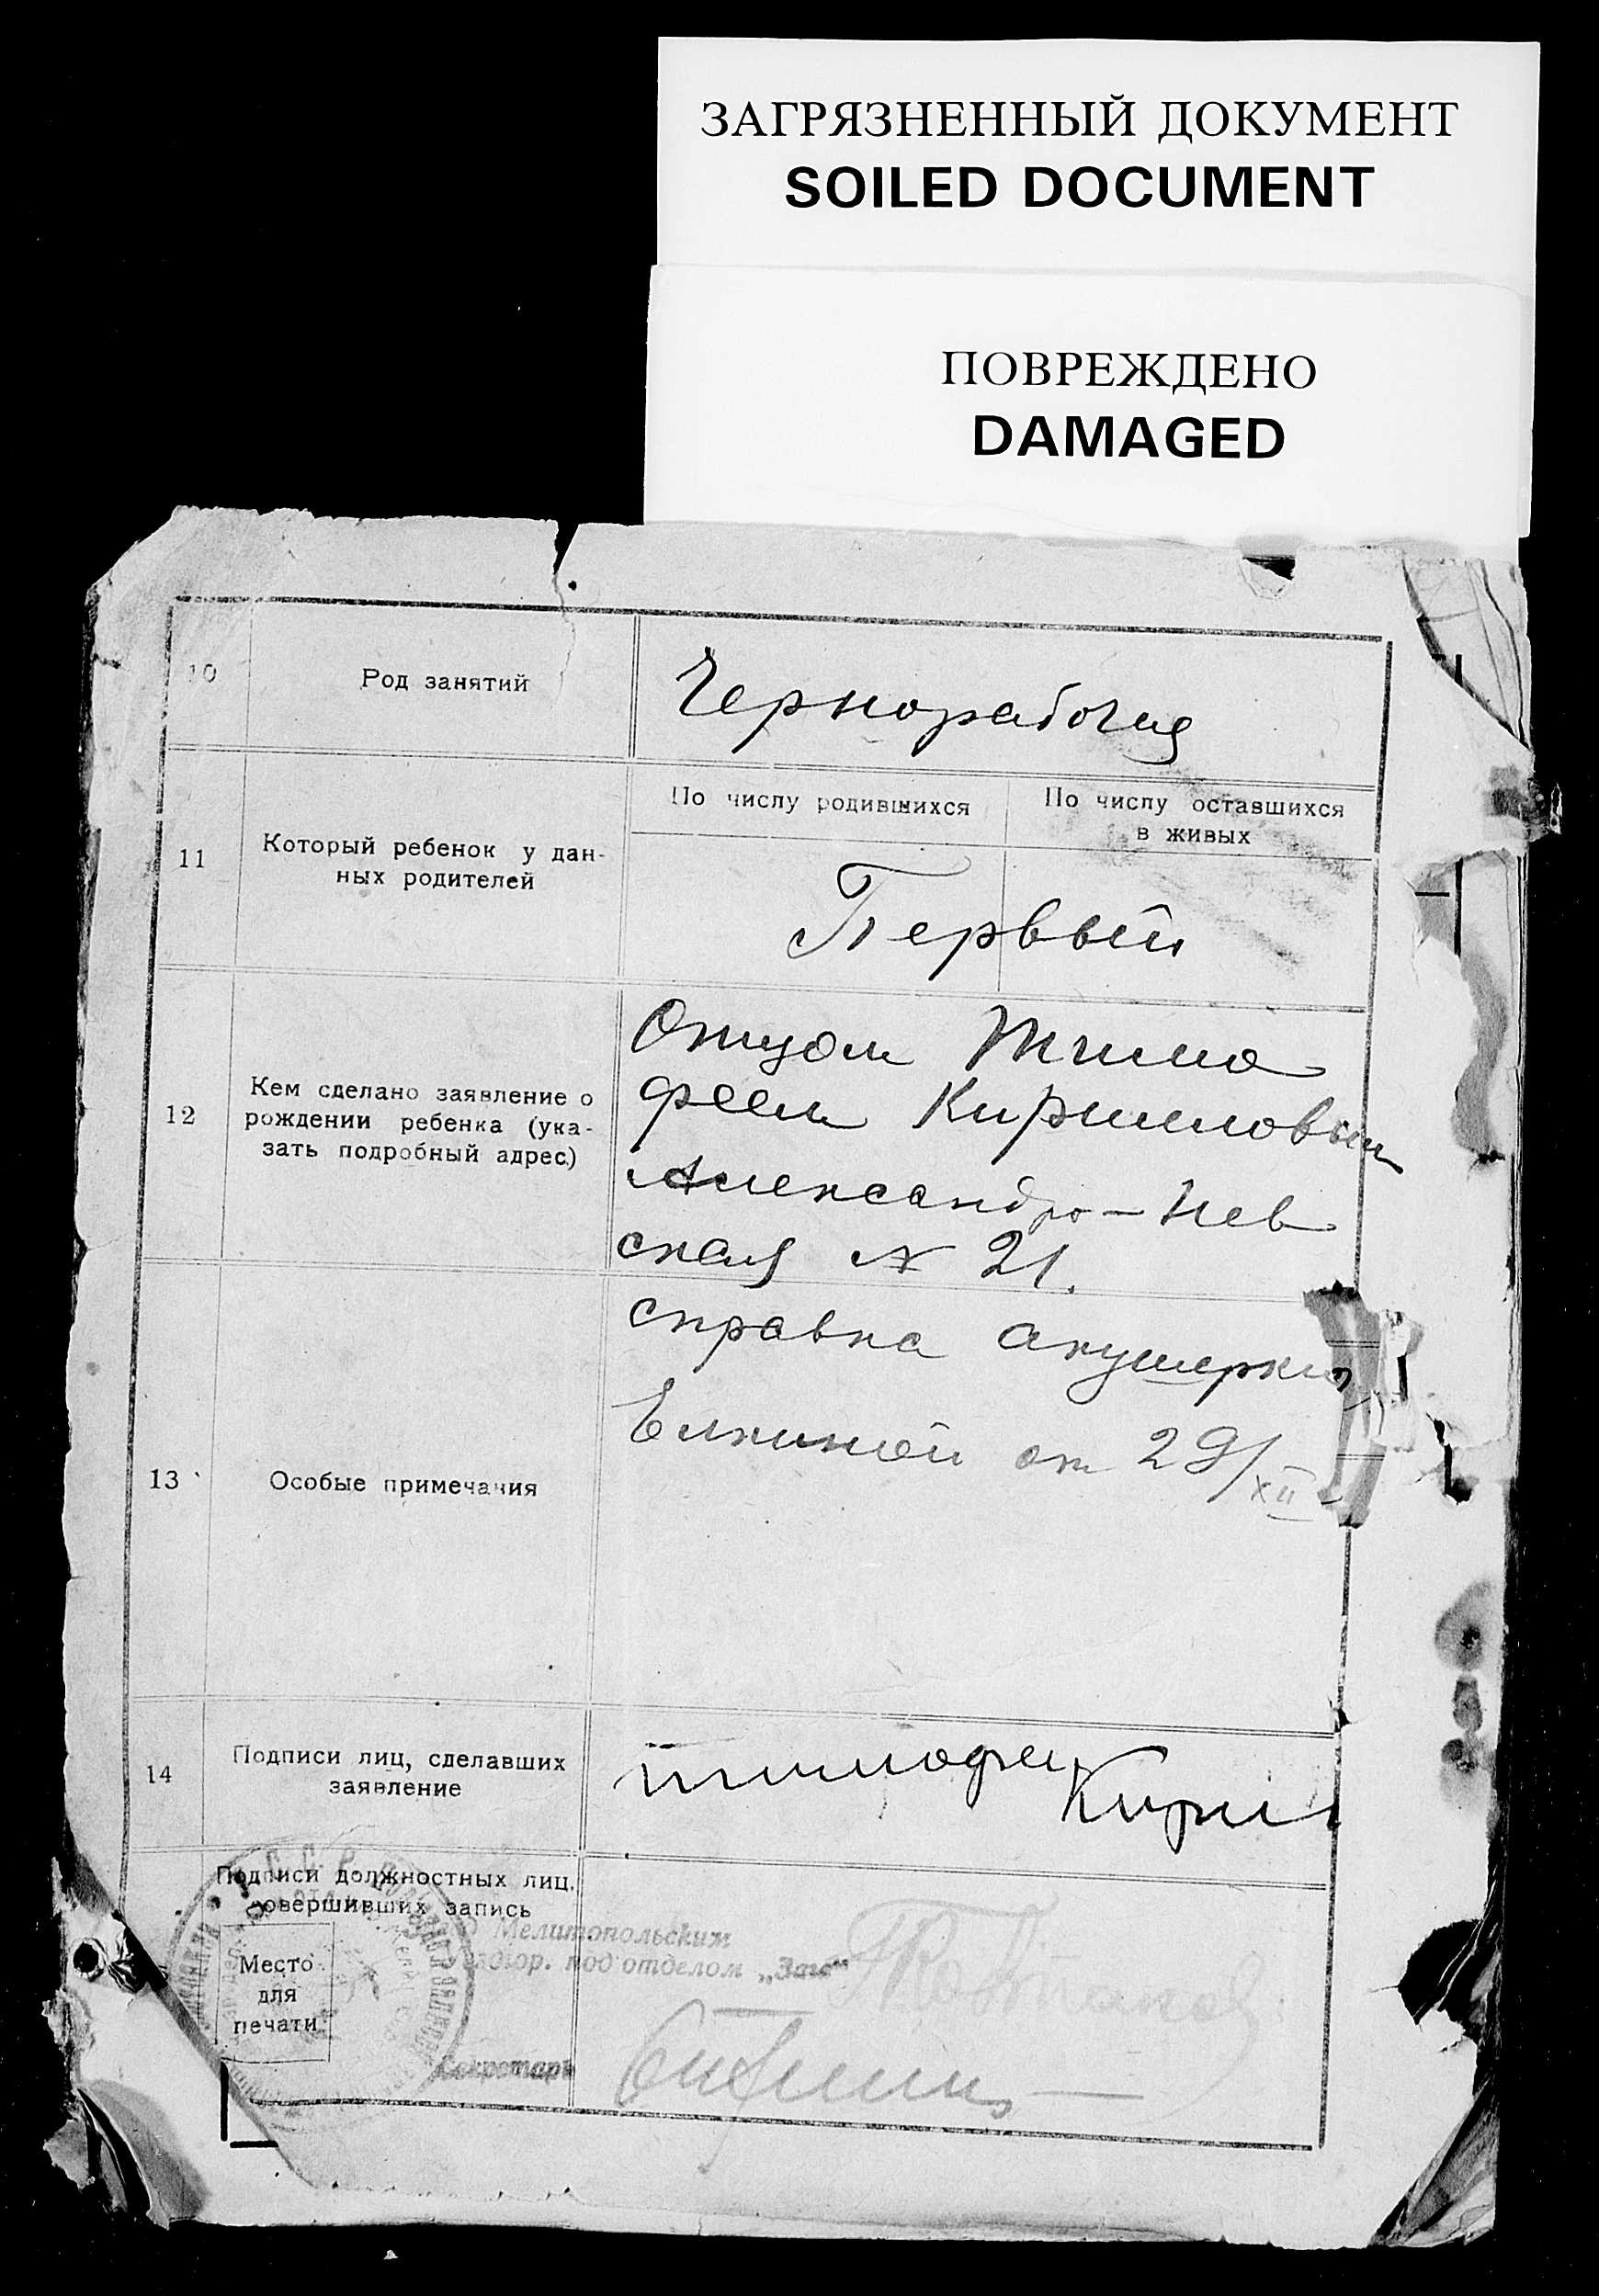 ЗАГРЯЗНЕННЫЙ ДОКУМЕНТ
SOILED DOCUMENT
ПОВРЕЖДЕНО
DAMAGED
10
Род занятий
Чернорабочая
11
Который ребенок у дан-
ных родителей
По числу родившихся
По числу оставшихся
в живых
Первый
12
Кем сделано заявление о
рождении ребенка (ука-
зать подробный адрес)
Отцом Тимо
феем Кирилловым
Александро-Нев
ская № 21.
13
Особые примечания
справка акушерки
Елкиной от 29/XII
14
Подписи лиц, сделавших
заявление
тимофей
Кирил
Подписи должностных лиц,
совершивших запись
Место
для
печати
Мелитопольским
под'отделом „Загс“
Секретарь